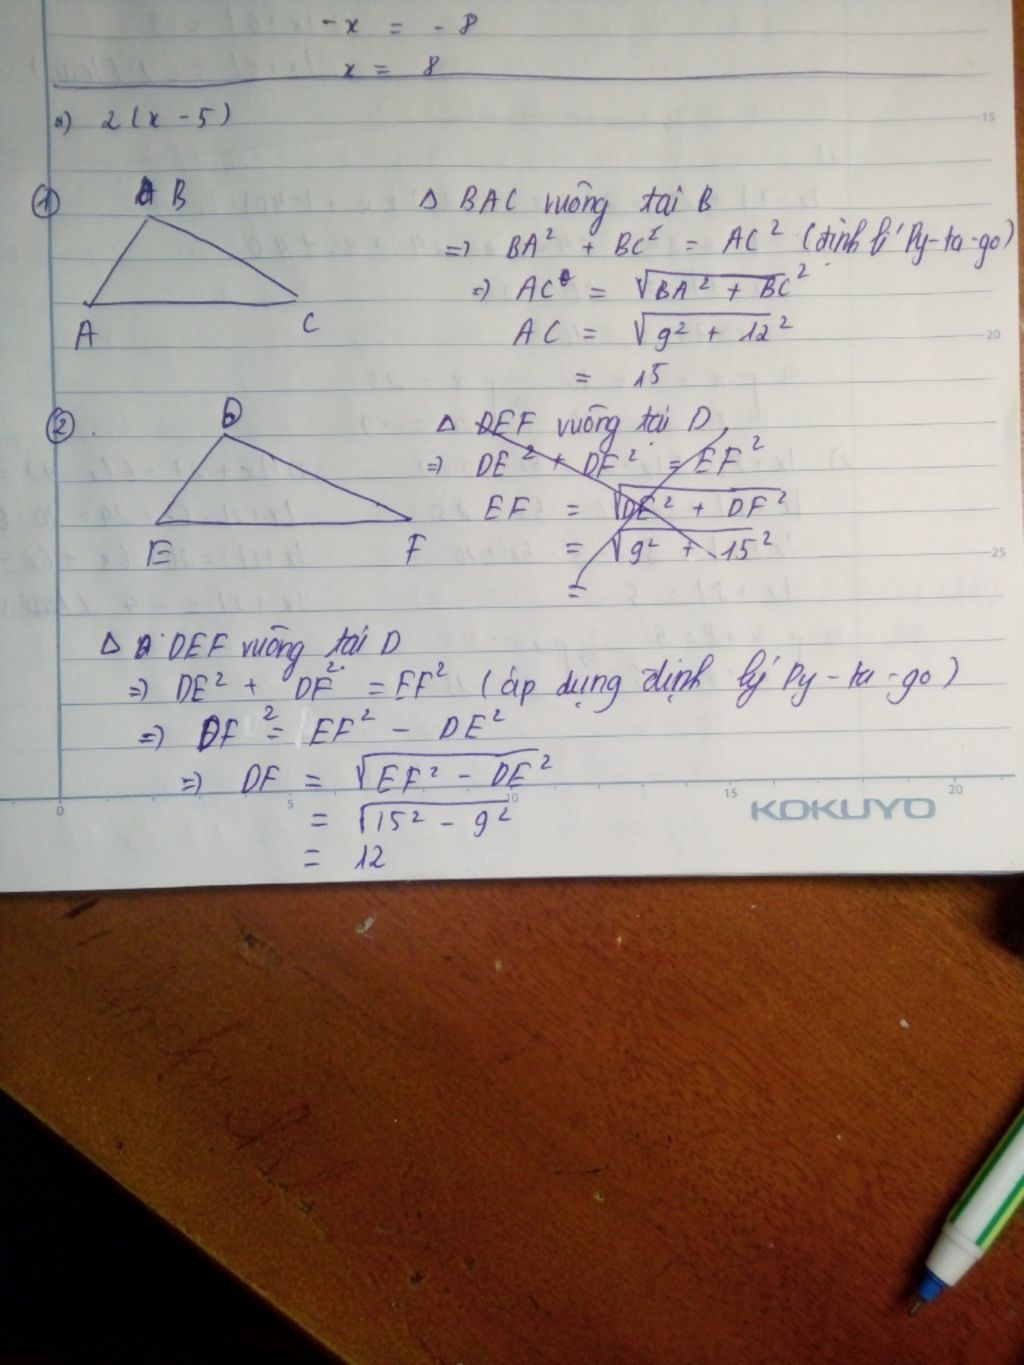 -x = -8
x = 8
2(x - 5)
① B
Δ BAC vuông tại B
=> BA² + BC² = AC² (định lí Py-ta-go)
=> AC = √BA² + BC²
A C
AC = √9² + 12²
= 15
② D
Δ DEF vuông tại D
=> DE² + DF² = EF²
EF = √DE² + DF²
E F
= √9² + 15²
=
Δ DEF vuông tại D
=> DE² + DF² = EF² (áp dụng định lý Py-ta-go)
=> DF² = EF² - DE²
=> DF = √EF² - DE²
= √15² - 9²
= 12
15
20
25
0 5 10 15 20
KOKUYO